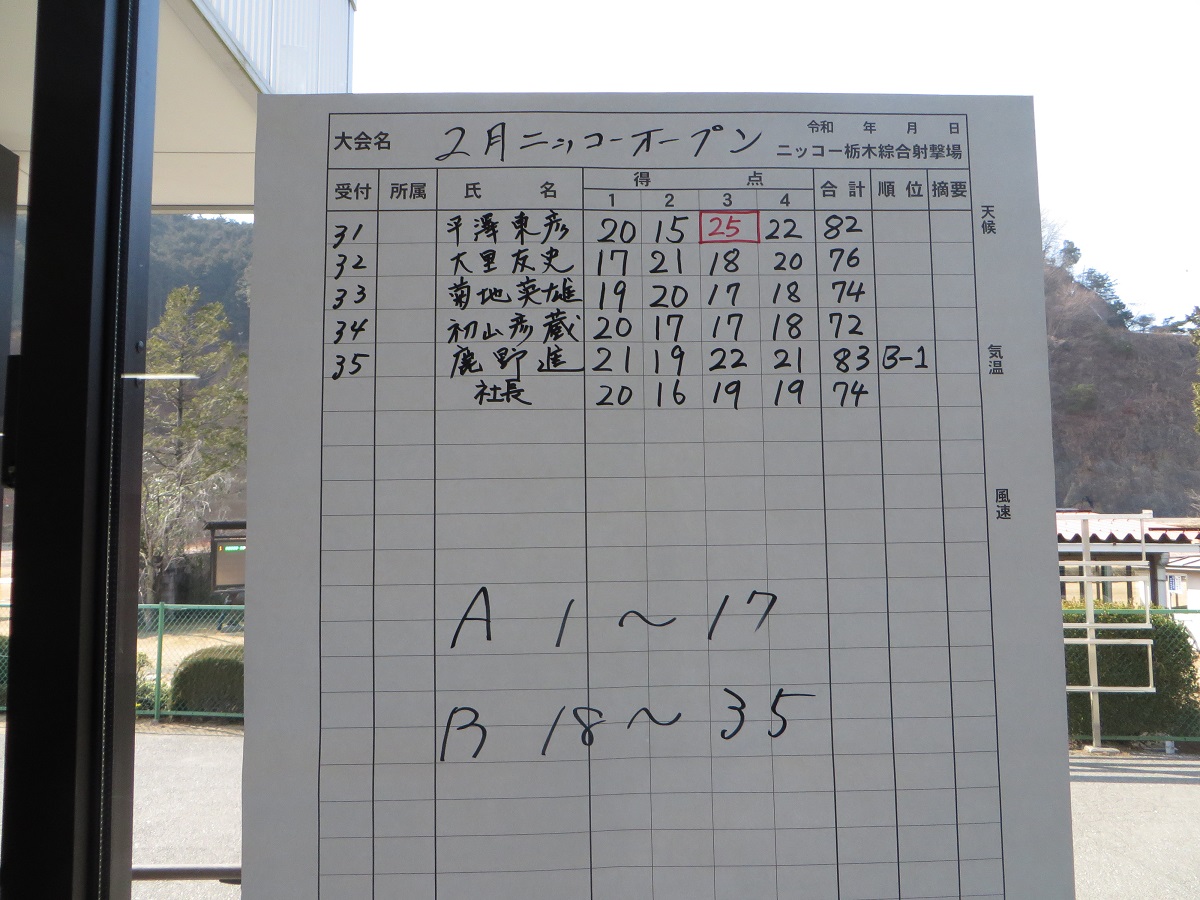 大会名 2月ニッコーオープン 令和 年 月 日
ニッコー栃木綜合射撃場
受付 所属 氏 名 得 点 合計 順位 摘要
1 2 3 4
31 平澤東彦 20 15 25 22 82
32 大里友史 17 21 18 20 76
33 菊地英雄 19 20 17 18 74
34 初山彦蔵 20 17 17 18 72
35 鹿野進 21 19 22 21 83 B-1
社長 20 16 19 19 74
A 1～17
B 18～35
天候
気温
風速